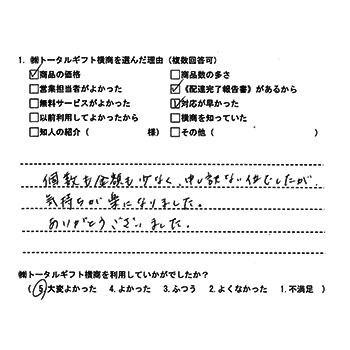 1. ㈱トータルギフト横商を選んだ理由（複数回答可）
☑商品の価格 □商品数の多さ
□営業担当者がよかった ☑《配達完了報告書》があるから
□無料サービスがよかった ☑対応が早かった
□以前利用してよかったから □横商を知っていた
□知人の紹介（ 様） □その他（ ）
個数も金額も少なく、申し訳ない件でしたが、
気持ちが楽になりました。
ありがとうございました。
㈱トータルギフト横商を利用していかがでしたか？
（ 5.大変よかった 4.よかった 3.ふつう 2.よくなかった 1.不満足 ）